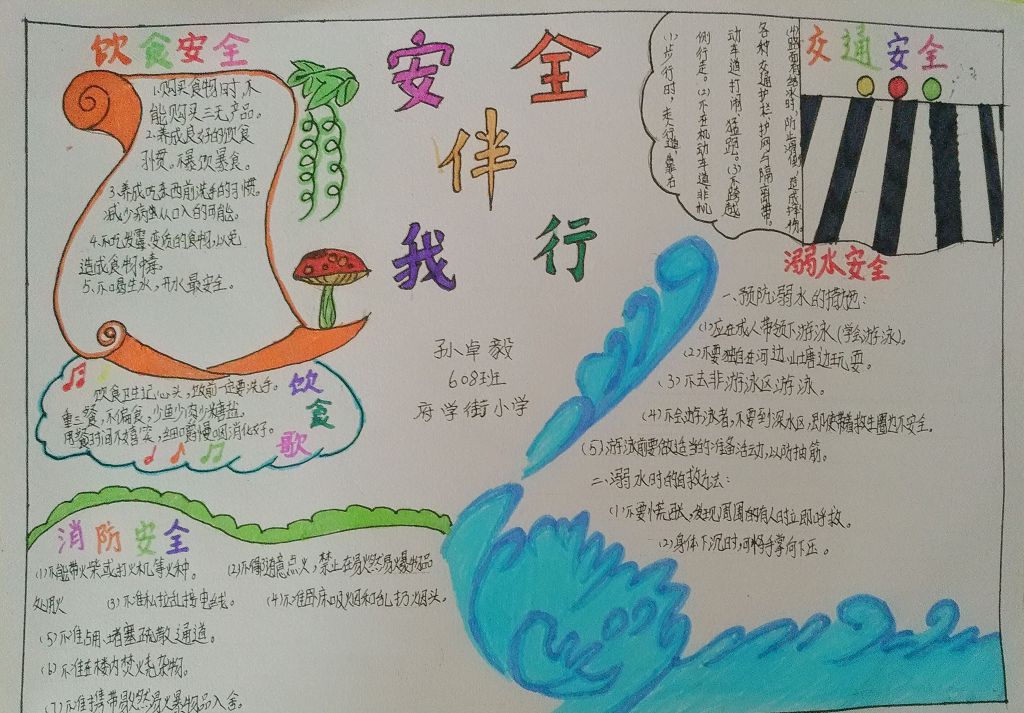 饮食安全
1.购买食物时,不
能购买三无产品。
2.养成良好的饮食
习惯。不暴饮暴食。
3.养成吃东西前洗手的习惯。
减少病从口入的可能。
4.不吃发霉.变质的食物,以免
造成食物中毒。
5.不喝生水,开水最安全。
饮食歌
饮食卫生记心头,饭前一定要洗手。
重三餐,不偏食,少鱼少肉少
用餐时间不嬉笑,细嚼慢咽消化好。
安全
伴
我行
孙卓毅
608班
府学街小学
交通安全
(1)步行时,走人行道,靠右
侧行走。(2)不在机动车道、非机
动车道打闹、猛跑。(3)不跨越
各种交通护栏护网与隔离带。
(4)路面有结冰时,防止滑倒,造成摔伤。
溺水安全
一、预防溺水的措施:
(1)应在成人带领下游泳(学会游泳)。
(2)不要独自在河边、山塘边玩耍。
(3)不去非游泳区游泳。
(4)不会游泳者,不要到深水区,即使带着救生圈也不安全。
(5)游泳前要做适当的准备活动,以防抽筋。
二、溺水时的自救方法:
(1)不要慌张,发现周围有人时立即呼救。
(2)身体下沉时,可将手掌向下压。
消防安全
(1)不能带火柴或打火机等火种。 (2)不得随意点火,禁止在易燃易爆物品
处用火 (3)不准私拉乱接电线。 (4)不准卧床吸烟和乱扔烟头。
(5)不准占用、堵塞疏散通道。
(6)不准在楼内焚烧杂物。
(7)不准携带易燃易爆物品入舍。